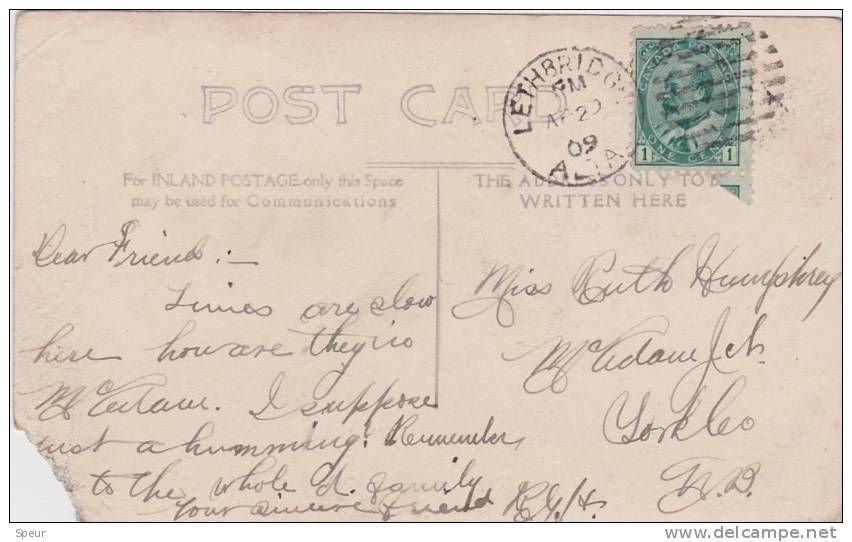 POST CARD
LETHBRIDGE
PM
AP 29
09
ALTA
CANADA POSTAGE
1 ONE CENT 1
For INLAND POSTAGE only this Space
may be used for Communications
THE ADDRESS ONLY TO BE
WRITTEN HERE
Dear Friend :-
Times are slow
here how are they in
McAdam. I suppose
just a humming. Remember
to the whole d. family
Your sincere friend R.G.H.
Miss Ruth Humphrey
McAdam Jct.
York Co
N.B.
Speur
delcampe.net